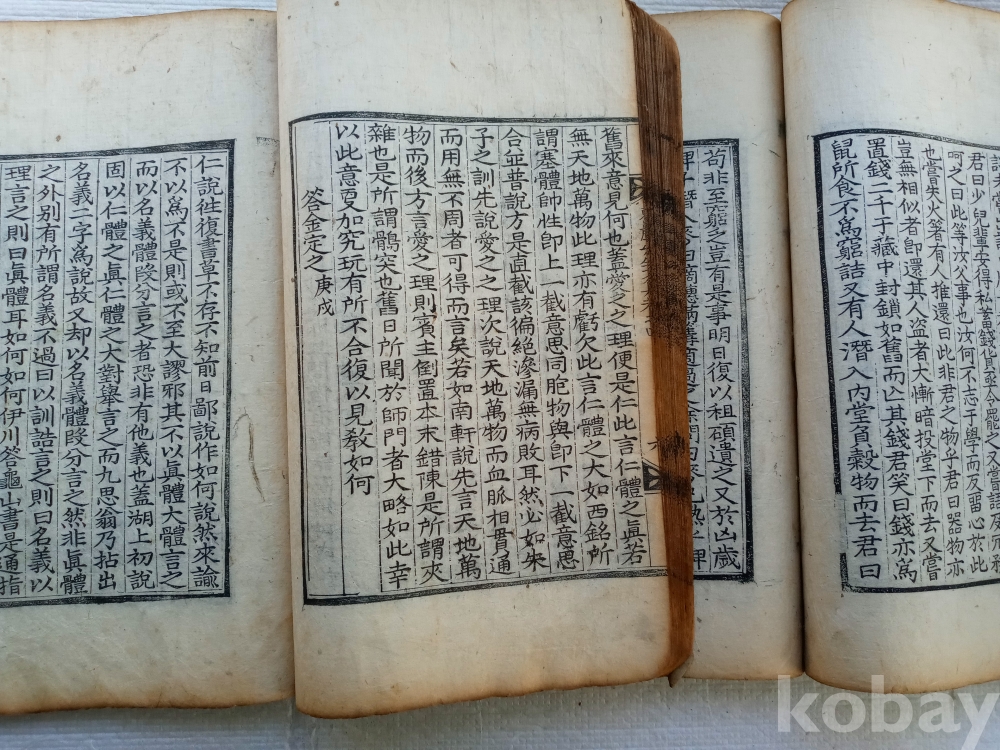 君曰少兒輩安得私蓄錢貨亟令罷之又嘗語
呵之曰此等汝父事也汝何不志于學而反留心於此
也嘗失火箸有人推還曰此君之物乎君曰器物亦
豈無相似者即還其人盜者大慚暗投堂下而去又嘗
置錢二千于藏中封鎖如舊而亡其錢君笑曰錢亦爲
鼠所食不爲竊詰又有人潛入內堂負穀物而去君曰
苟非至窮乏豈有是事明日復以租碩遺之又於凶歲
六
舊來意見何也蓋愛之之理便是仁此言仁體之眞若
無天地萬物此理亦有虧欠此言仁體之大如西銘所
謂塞體帥性卽上一截意思同胞物與卽下一截意思
合並普說方是直截該徧絶滲漏無病敗耳然必如朱
子之訓先說愛之之理次說天地萬物而血脈相貫通
而用無不周者可得而言矣若如南軒說先言天地萬
物而後方言愛之之理則賓主倒置本末錯陳是所謂夾
雜也是所謂鶻突也舊日所聞於師門者大略如此幸
以此意更加究玩有所不合復以見敎如何
答金定之 庚戌
仁說往復書草不存不知前日鄙說作如何說然來諭
不以爲不是則或不至大謬邪其不以眞體大體言之
而以名義體段分言之者恐非有他義也蓋湖上初說
固以仁體之眞仁體之大對擧言之而九思翁乃拈出
名義二字爲說故又却以名義體段分言之然非眞體
之外別有所謂名義不過曰以訓誥言之則曰名義以
理言之則曰眞體耳如何如何伊川答龜山書是通指
kobay